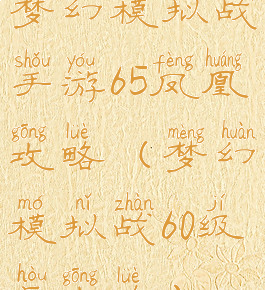 梦幻模拟战
shǒu yóu fèng huáng
手游65凤凰
gōng lüè mèng huàn
攻略(梦幻
mó nǐ zhàn jí
模拟战60级
hòu gōng lüè